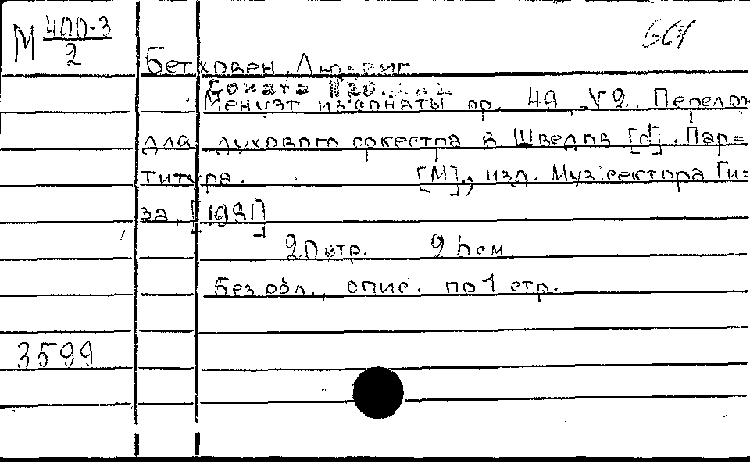 М 400-3
2
601
Бетховен, Людвиг
Соната №20.
Менуэт из сонаты ор. 49, №2. Перелож
для духового оркестра В Шведов [d]. Пар=
титура. [М]., изд. Муз.сектора Ги=
за, [193
2 Петр. 2 Нсм
Без обл., опис. по 1 стр.
3599